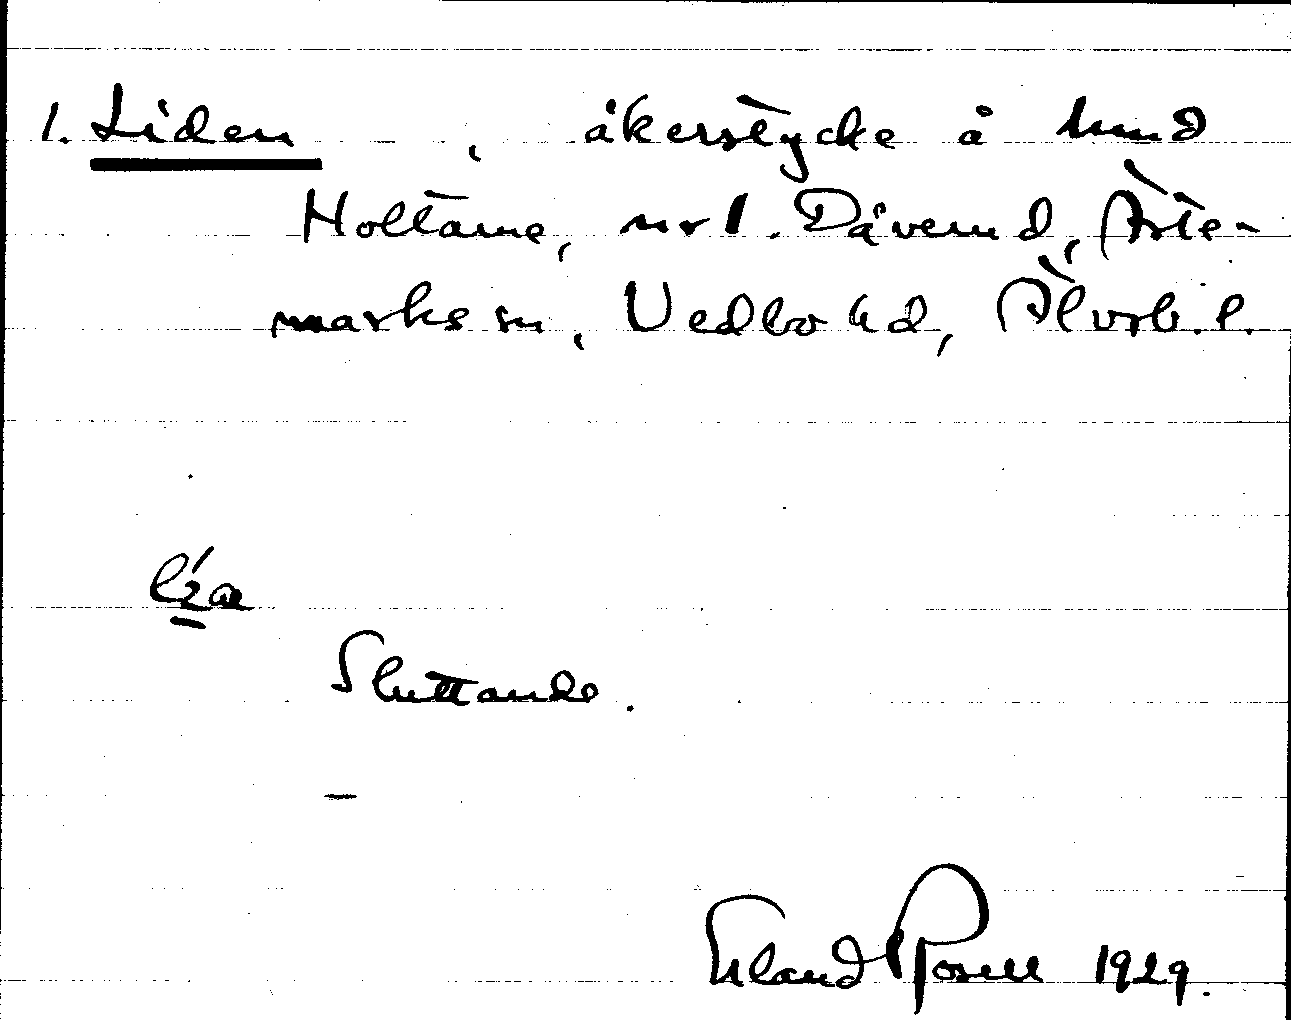 1. Liden, åkerstycke å hmd
Holtane, nr 1. Dåverud, Årte-
marks sn, Vedbo hd, Älvsb. l.
Sluttande.
Erland Rosell 1929.